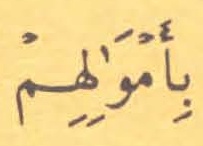 بِأَمْوَٰلِهِمْ